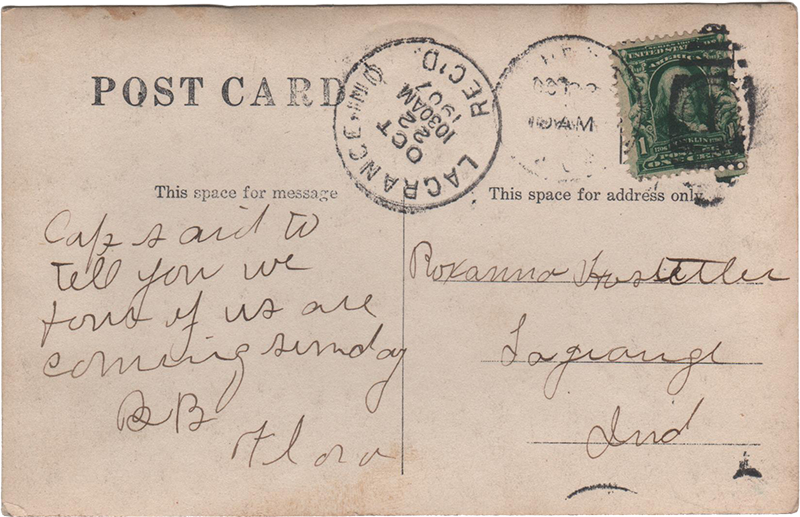 POST CARD
LAGRANGE, IND. REC'D.
OCT
22
1030AM
1907
10AM
UNITED STATES
AMERICA
1 FRANKLIN 1
This space for message
This space for address only
Cap said to
tell you we
four of us are
coming sunday
BB
Flora
Roxanna Hostetler
Lagrange
Ind